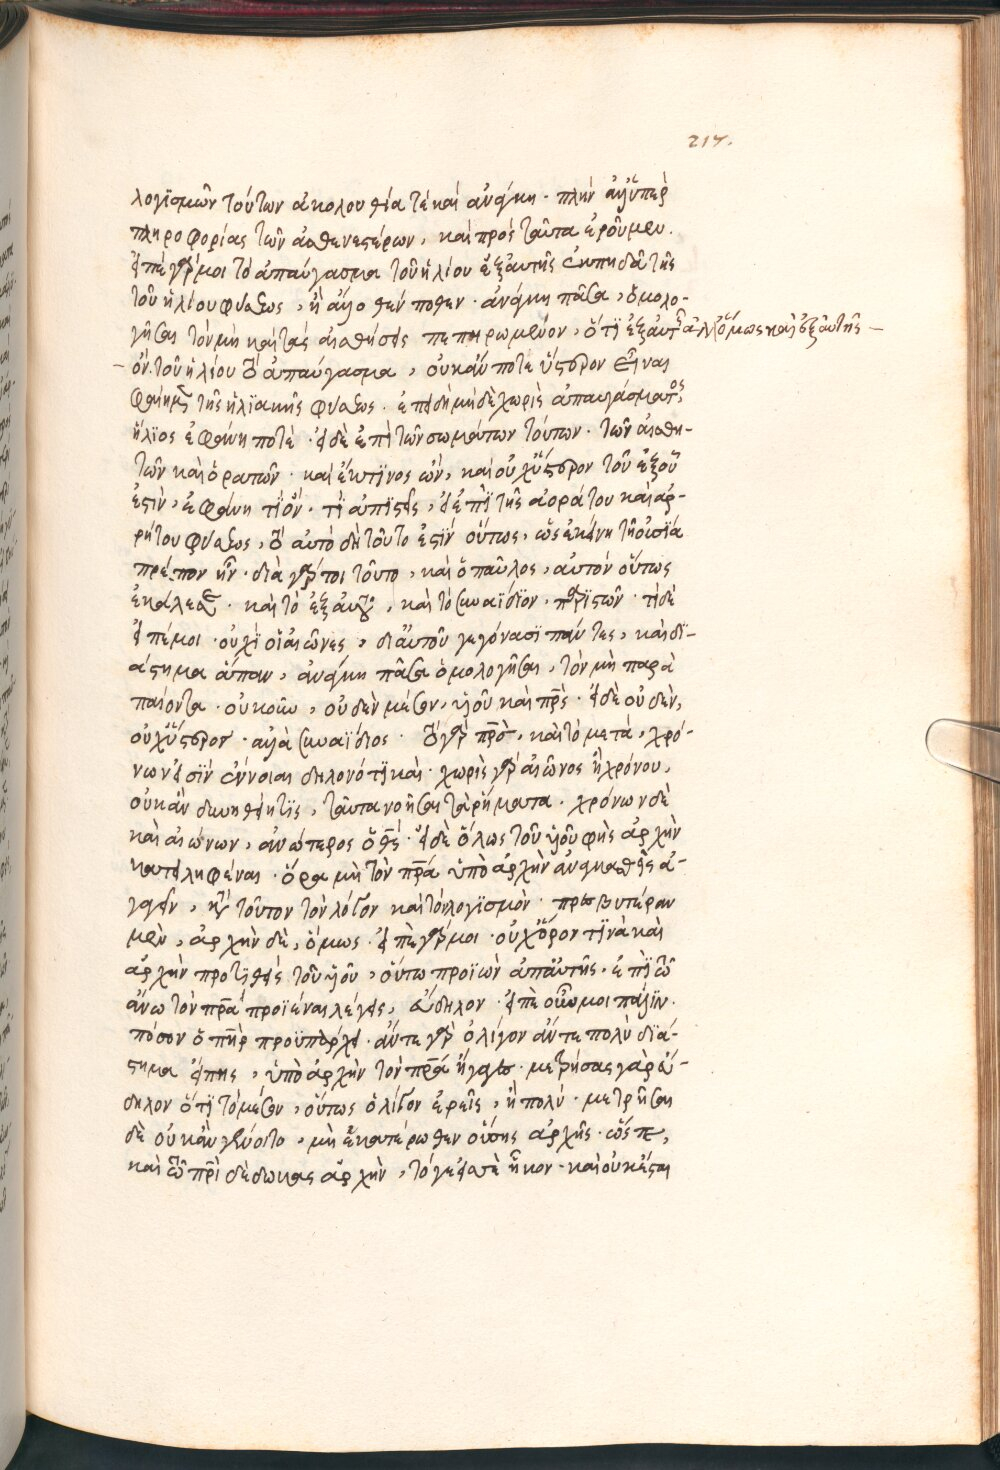 217.
λογϊσμῶν τούτων ἀκολουθία τὲ καὶ ἀνάγκη · πλὴν ἀλλ' ὑπὲρ
πληροφορίας τῶν ἀσθενεστέρων, καὶ πρὸς ταῦτα ἐροῦμεν.
εἰπὲ γάρ μοι τὸ ἀπαύγασμα τοῦ ἡλίου ἐξ αὐτῆς ἐκπηδᾶ τῆς
τοῦ ἡλίου φύσεως, ἢ ἄλλοθέν ποθεν · ἀνάγκη πᾶσα, ὁμολο-
γῆσαι τὸν μὴ καὶ τὰς αἰσθήσεις πεπηρωμένον, ὅτϊ ἐξ αὐτῆς ἀλλ' ὅμως καὶ ἐξ αὐτῆς
ὂν τοῦ ἡλίου τὸ ἀπαύγασμα, οὐκ ἄν ποτε ὕστερον εἶναι
φαίημεν τῆς ἡλϊακῆς φύσεως · ἐπειδὴ μηδὲ χωρὶς ἀπαυγάσματος
ἥλϊος ἐφάνη ποτὲ · εἰ δὲ ἐπὶ τῶν σωμάτων τούτων · τῶν αἰσθη-
τῶν καὶ ὁρατῶν · καὶ ἔκ τϊνος ὢν, καὶ οὐχ ὕστερον τοῦ ἐξ οὗ
ἐστὶν, ἐφάνη τϊ ὂν · τί ἀπϊστεῖς, εἰ ἐπὶ τῆς ἀοράτου καὶ ἀρ-
ρήτου φύσεως, τὸ αὐτὸ δὴ τοῦτο ἐστὶν οὕτως, ὡς ἐκείνῃ τῇ οὐσίᾳ
πρέπον ἦν · διὰ γάρ τοι τοῦτο, καὶ ὁ παῦλος, αὐτὸν οὕτως
ἐκάλεσεν · καὶ τὸ ἐξ αὐτοῦ, καὶ τὸ συναΐδϊον · παριστῶν · τί δὲ
εἰπέ μοι · οὐχὶ οἱ αἰῶνες, δι' αὐτοῦ γεγόνασϊ πάντες, καὶ δϊ-
άστημα ἅπαν, ἀνάγκη πᾶσα ὁμολογῆσαι, τὸν μὴ παρα
παίοντα · οὐκοῦν, οὐδὲν μέσον, υἱοῦ καὶ πρς · εἰ δὲ οὐδὲν,
οὐχ ὕστερον · ἀλλὰ συναΐδιος · τὸ γὰρ πρὸ, καὶ τὸ μετὰ, χρό-
νων εἰσὶν ἔννοιαι δηλονότϊ καὶ · χωρὶς γὰρ αἰῶνος ἢ χρόνου,
οὐκ ἂν δυνηθείη τϊς, ταῦτα νοῆσαι τὰ ῥήματα · χρόνων δὲ
καὶ αἰώνων, ἀνώτερος ὁ θς · εἰ δὲ ὅλως τοῦ υἱοῦ φὴς ἀρχὴν
κατειληφέναι · ὅρα μὴ τὸν πρα ὑπὸ ἀρχὴν ἀναγκασθῇς ἀ-
γαγεῖν, κατὰ τοῦτον τὸν λόγον καὶ τὸν λογϊσμὸν · πρεσβυτέραν
μὲν, ἀρχὴν δὲ, ὅμως · εἰπὲ γάρ μοι · οὐχ ὅρον τϊνὰ καὶ
ἀρχὴν προτϊθεὶς τοῦ υἱοῦ, οὕτω προϊὼν ἀπ' αὐτῆς · ἐπὶ τὸ
ἄνω τὸν πρα προϊέναι λέγεις, εὔδηλον · εἰπὲ οὖν μοι πάλϊν ·
πόσον ὁ πηρ προϋπάρχει · ἄν τε γὰρ ὀλίγον ἄν τε πολὺ δϊά-
στημα εἴπῃς, ὑπὸ ἀρχὴν τὸν πρα ἤγαγες · μετρήσας γὰρ εὔ-
δηλον ὅτϊ τὸ μέσον, οὕτως ὀλίγον ἐρεῖς, ἢ πολὺ · μετρῆσαι
δὲ οὐκ ἂν γένοιτο, μὴ ἑκατέρωθεν οὔσης ἀρχῆς · ὥστε,
καὶ τῷ πρὶ δέδωκας ἀρχὴν, τό γε εἰς σὲ ἧκον · καὶ οὐκ ἔσται